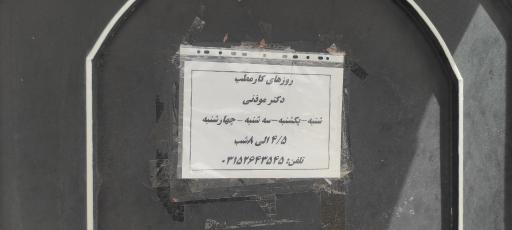 روزهای کارمطب
دکتر موذنی
شنبه -یکشنبه- سه شنبه - چهارشنبه
۴/۵ الی ۸شب
تلفن: ۰۳۱۵۲۶۴۳۵۴۵